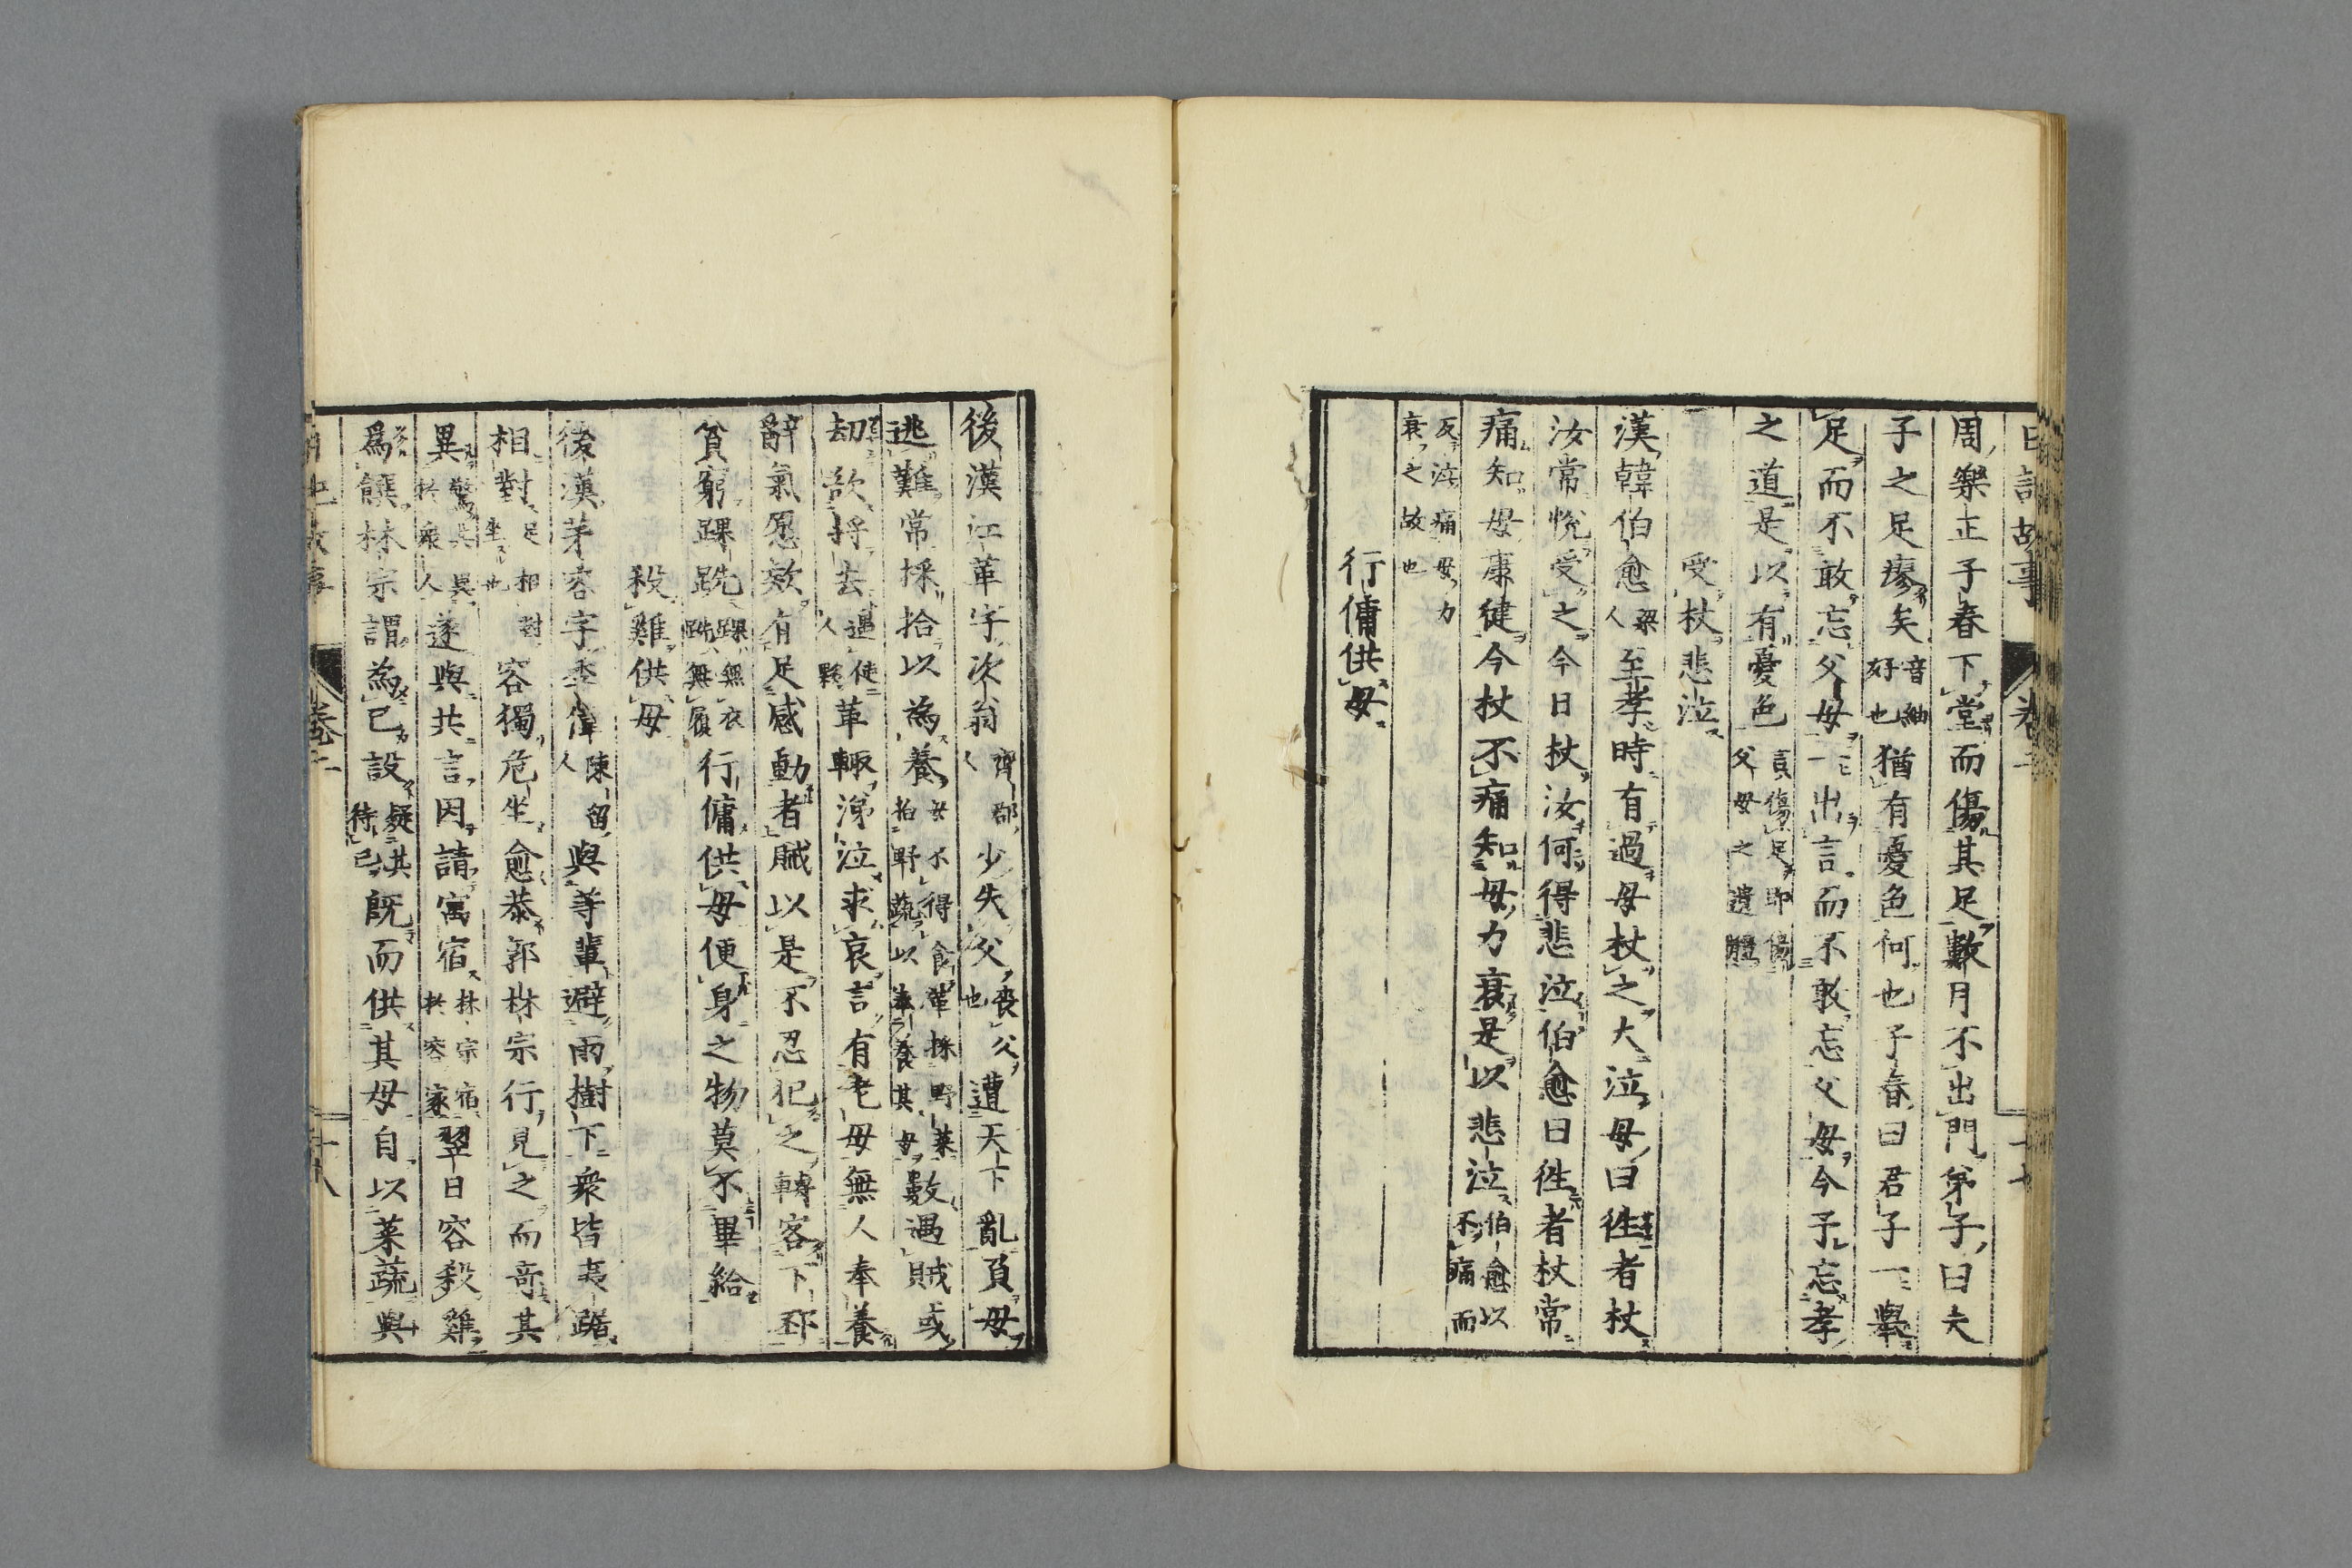 日記故事 卷二
周樂正子春下堂而傷其足數月不出門弟子曰夫
子之足瘳矣音紬好也猶有憂色何也子春曰君子一舉
足而不敢忘父母一出言而不敢忘父母今予忘孝
之道是以有憂色言傷足即傷父母之遺體
受杖悲泣
漢韓伯愈梁人至孝時有過母杖之大泣母曰徃者杖
汝常悅受之今日杖汝何得悲泣伯愈曰徃者杖常
痛知母康健今杖不痛知母力衰是以悲泣伯愈以不痛而
反泣痛母力衰之故也
行傭供母
後漢江革字次翁齊郡人少失父喪父也遭天下亂負母
逃難常採拾以為養母不得食革採野菜拾野蔬以奉養其母數遇賊或
劫欲將去遇徒人夥革輒涕泣求哀言有老母無人奉養
辭氣愿欵有足感動者賊以是不忍犯之轉客下邳
貧窮踝跣踝無衣跣無履行傭供母便身之物莫不畢給
殺雞供母
後漢茅容字季偉陳留人與等輩避雨樹下衆皆夷踞
相對足相對坐也容獨危坐愈恭郭林宗行見之而奇其
異驚其異於衆人遂與共言因請寓宿林宗宿於容家翌日容殺雞
爲饌林宗謂為已設疑其待己既而供其母自以菜蔬與
卷二 十八